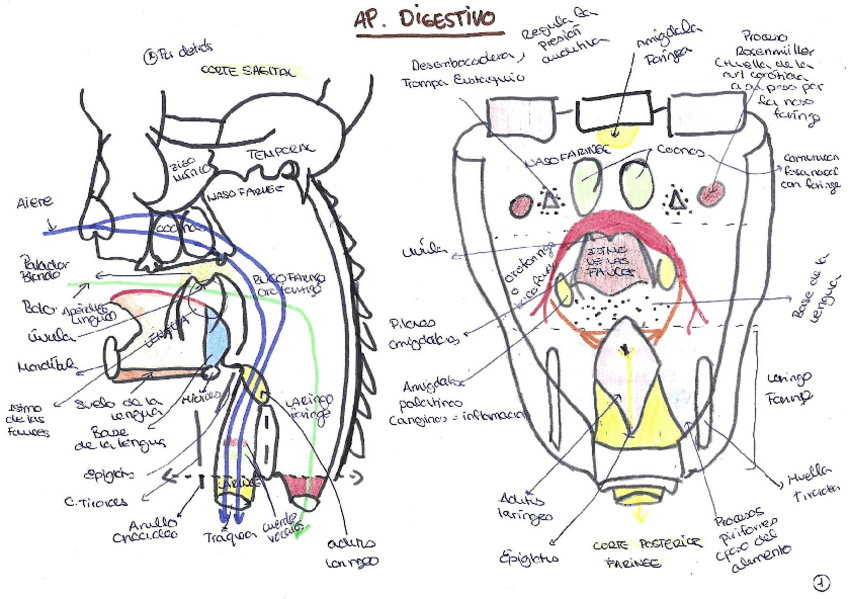 AP. DIGESTIVO
Por detrás
CORTE SAGITAL
TEMPORAL
NASO FARINGE
COANAS
Aire
Paladar
Blando
Bolo
Úvula
Mandíbula
Istmo
de las
Fauces
Suelo de la
Lengua
Base
de la lengua
Hioides
LENGUA
BUCO FARINGE
Orofaringe
LARINGO
faringe
Epiglotis
C. Tiroides
Anillo
Cricoides
LARINGE
Tráquea
cuerdas
vocales
aditus
laringeo
Desembocadura,
Trompa Eustaquio
Regula la
Presión
auditiva
Amígdala
Faríngea
Proceso
Rosenmüller
(Huella de la
a su paso por
la naso
faringe
NASOFARINGE
Coanas
comunican
fosa nasal
con faringe
Úvula
Orofaringe
o
ISTMO
DE LAS
FAUCES
Base de la
lengua
Pilares
amigdalinos
Amígdalas
palatinas
Canginas = inflamación
Laringo
Faringe
Aditus
laríngeo
Epiglotis
CORTE POSTERIOR
FARINGE
Procesos
Piriformes
(paso del
alimento
Huella
tiroidea
1